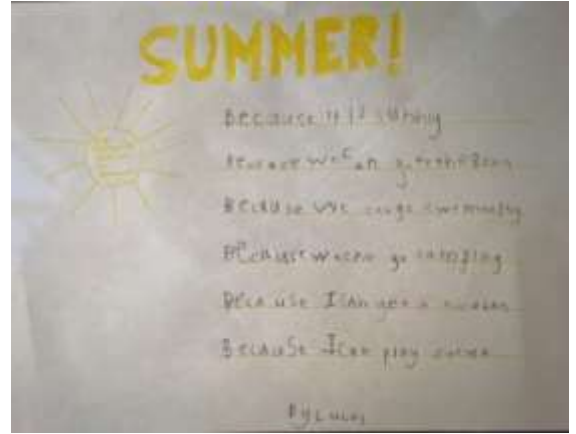 SUMMER!
Because it is sunny
Because we can go to the
Because we can go swimming
Because we can go camping
Because I can get a
Because I can play
By Lucas